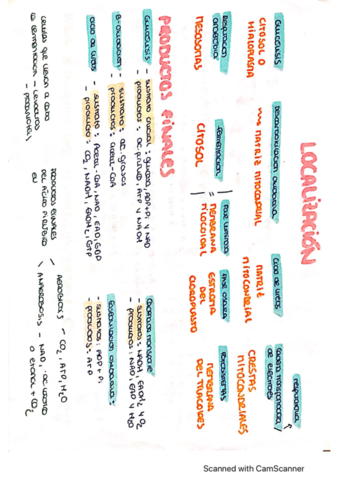 LOCALIZACIÓN
Glucólisis
CITOSOL O
HIALOPLASMA
Descarboxilación oxidativa
MATRIZ MITOCONDRIAL
Ciclo de Krebs
MATRIZ
MITOCONDRIAL
respiratoria
Cadena transportadora /
de electrones
CRESTAS
MITOCONDRIALES
Respiración
anaerobia
MESOSOMAS
Fermentación
CITOSOL
Fase luminosa
MEMBRANA
TILACOIDAL
Fase oscura
ESTROMA
DEL
CLOROPLASTO
Fotosistemas
MEMBRANA
DEL TILACOIDES
PRODUCTOS FINALES
Glucólisis
- sustrato inicial: glucosa, ADP+Pi y NAD
- producto: ac. pirúvico, ATP y NADH
B-oxidación
- sustrato: ac. grasos
- producto: acetil-CoA
Ciclo de Krebs
- sustrato: Acetil-CoA, NAD, FAD, GDP
- producto: CO2, NADH, FADH2, GTP
- sustratos: NADH, FADH2 y O2
- productos: NAD, FAD y H2O
Fosforilación oxidativa:
- sustratos: ADP + Pi
- productos: ATP
CÉLULAS QUE LLEVAN A CABO
LA FERMENTACIÓN - LEVADURAS
PRODUCTOS FINALES
DEL ÁCIDO PIRÚVICO
EN
AEROBIOSIS - CO2, ATP, H2O
ANAEROBIOSIS - NAD, ac. láctico
o etanol + CO2
Scanned with CamScanner